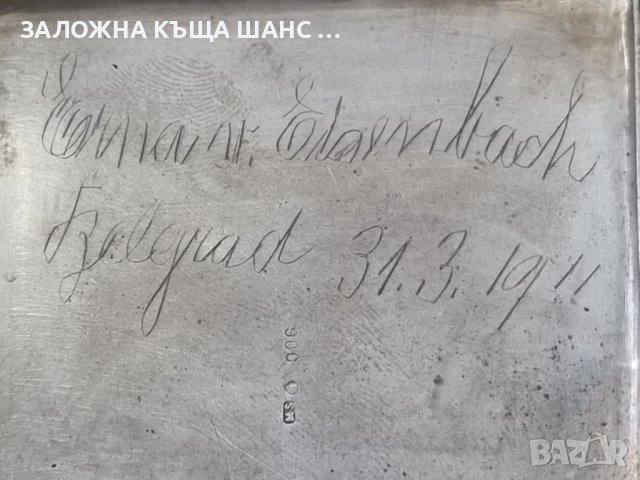 ЗАЛОЖНА КЪЩА ШАНС ...
Erna v. Eisenbach
Belgrad 31.3.1911
900
MS
BAZAR